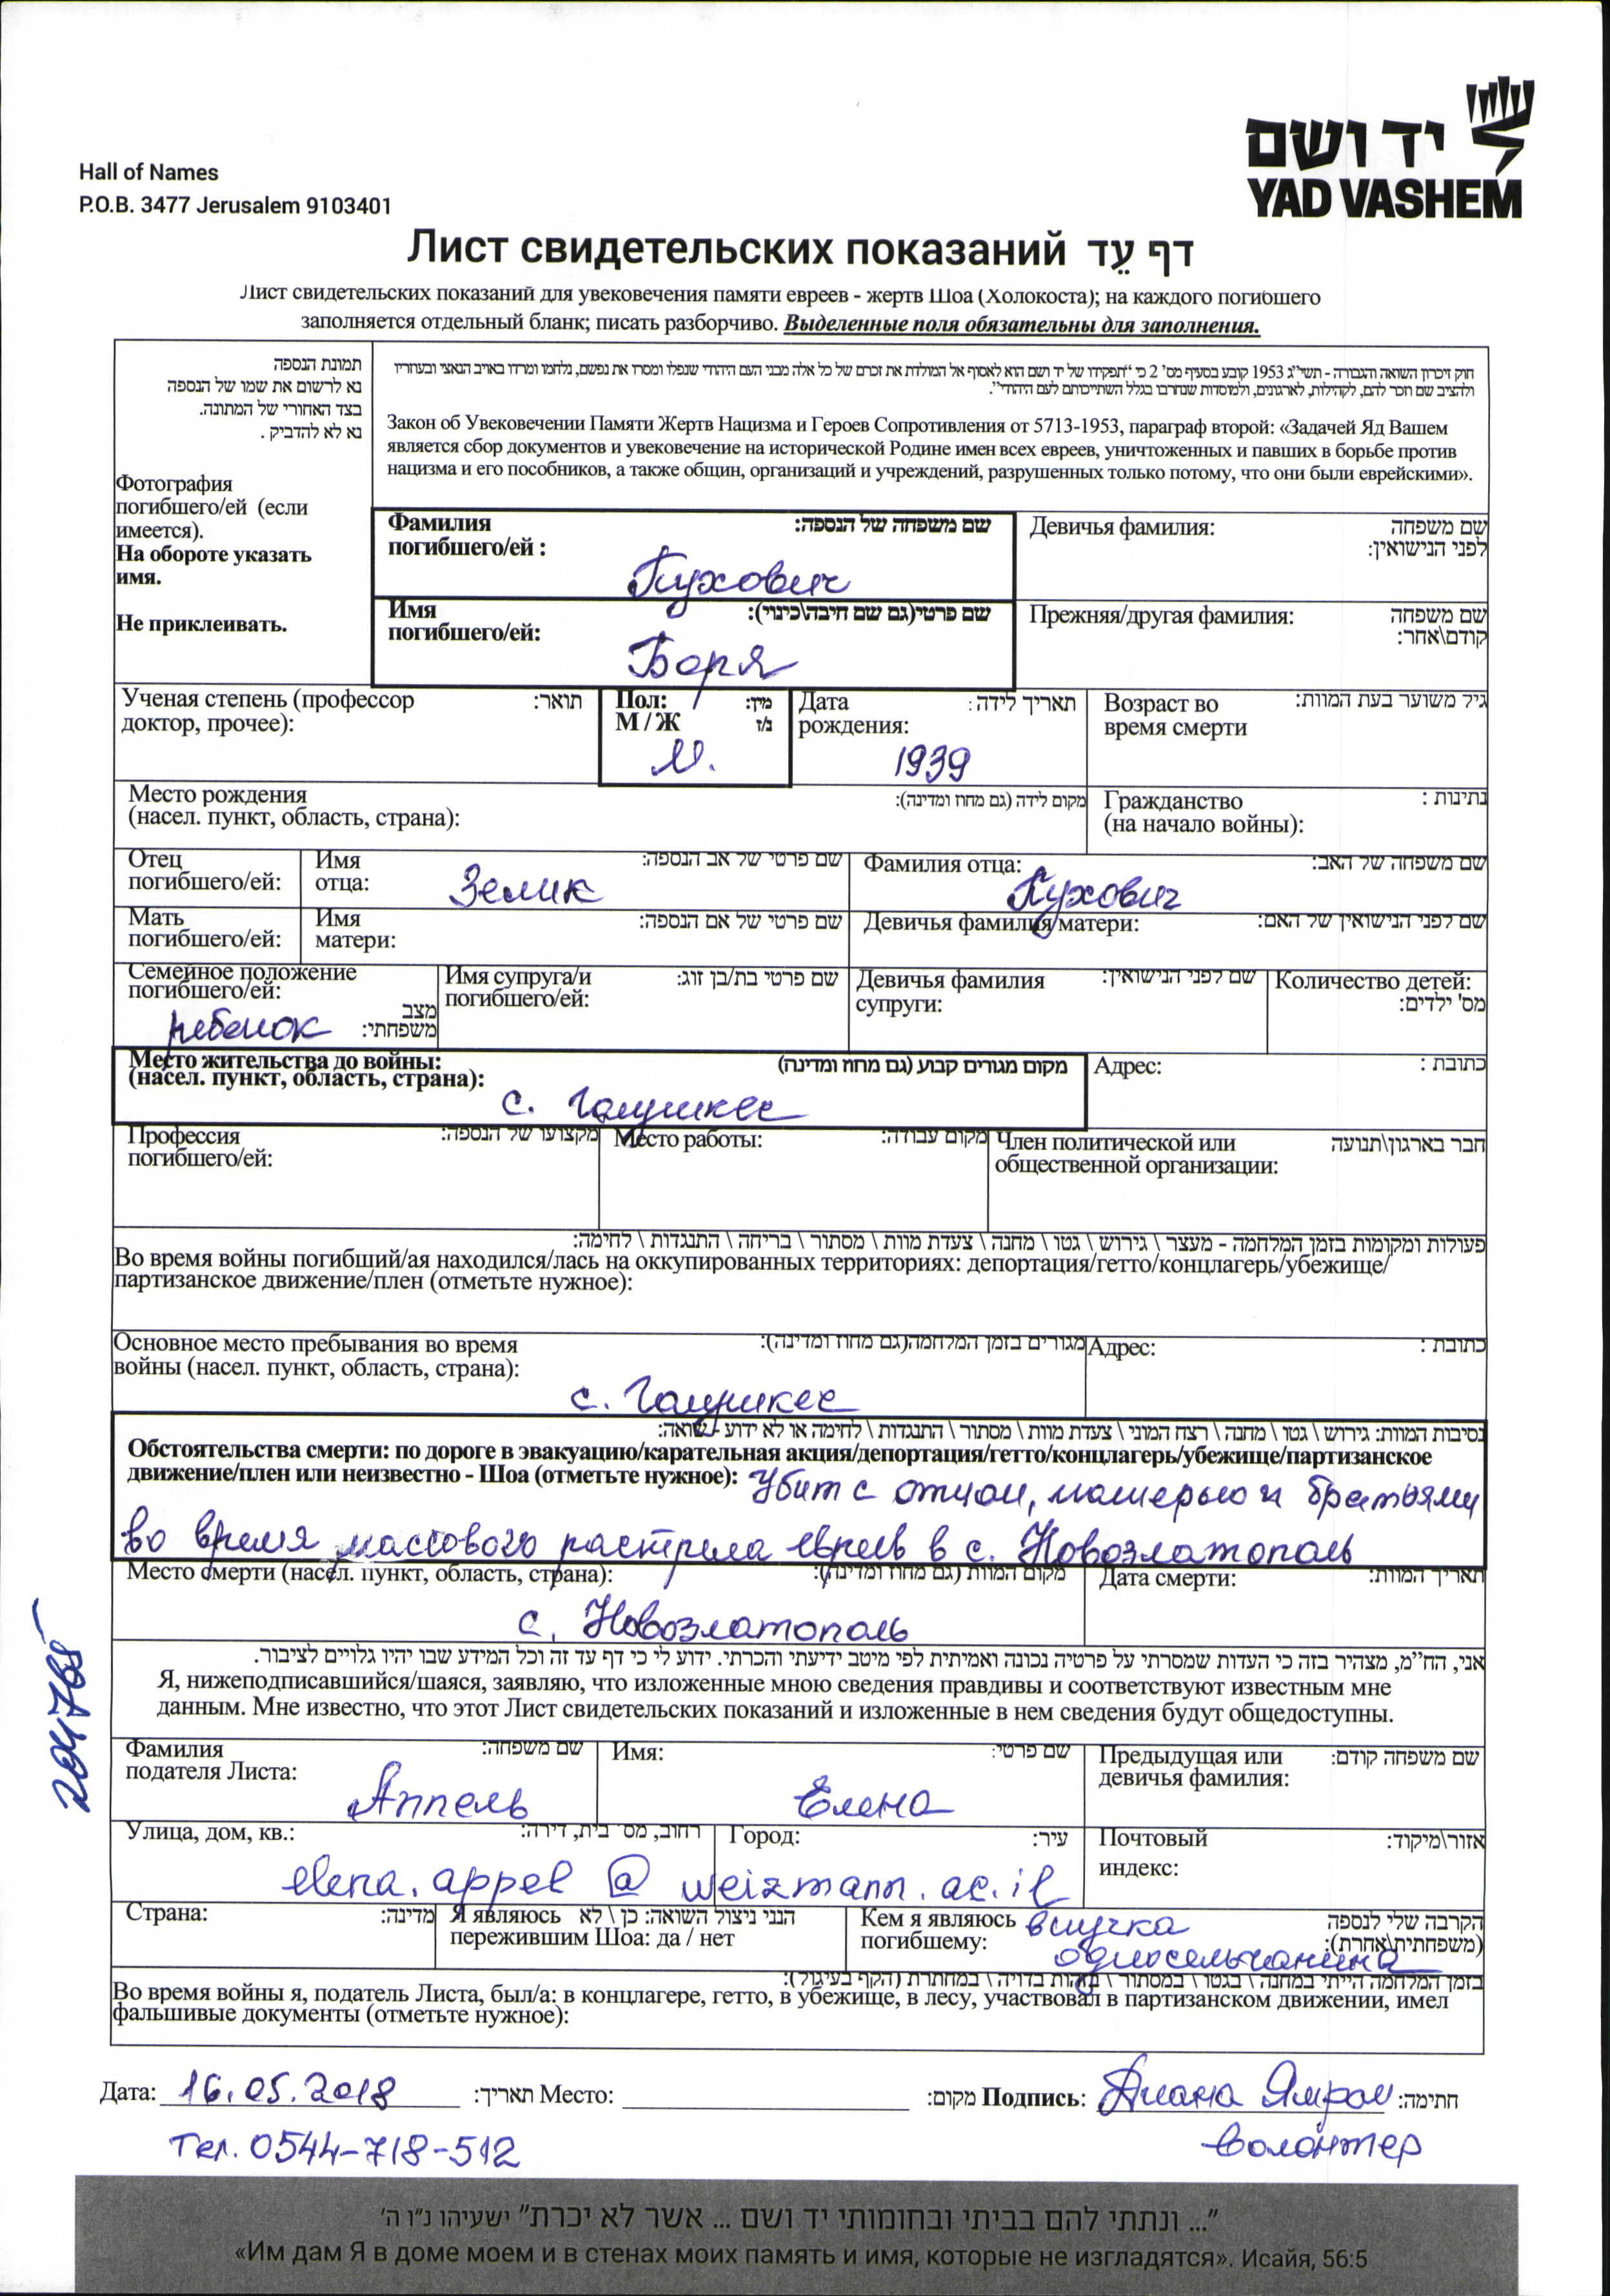 יד ושם
YAD VASHEM
Hall of Names
P.O.B. 3477 Jerusalem 9103401
Лист свидетельских показаний דף עֵד
Лист свидетельских показаний для увековечения памяти евреев - жертв Шоа (Холокоста); на каждого погибшего
заполняется отдельный бланк; писать разборчиво. Выделенные поля обязательны для заполнения.
תמונת הנספה
נא לרשום את שמו של הנספה
בצד האחורי של המתונה.
נא לא להדביק .
Фотография
погибшего/ей (если
имеется).
На обороте указать
имя.
Не приклеивать.
חוק זיכרון השואה והגבורה - תשי"ג 1953 קובע בסעיף מס' 2 כי "תפקידו של יד ושם הוא לאסוף אל המולדת את זכרם של כל אלה מבני העם היהודי שנפלו ומסרו את נפשם, נלחמו ומרדו באויב הנאצי ובעוזריו
ולהציב שם וזכר להם, לקהילות, לארגונים, ולמוסדות שנחרבו בגלל השתייכותם לעם היהודי".
Закон об Увековечении Памяти Жертв Нацизма и Героев Сопротивления от 5713-1953, параграф второй: «Задачей Яд Вашем
является сбор документов и увековечение на исторической Родине имен всех евреев, уничтоженных и павших в борьбе против
нацизма и его пособников, а также общин, организаций и учреждений, разрушенных только потому, что они были еврейскими».
Фамилия שם משפחה של הנספה:
погибшего/ей :
Пухович
Девичья фамилия: שם משפחה
לפני הנישואין:
Имя שם פרטי(גם שם חיבה\כינוי):
погибшего/ей:
Боря
Прежняя/другая фамилия: שם משפחה
קודם\אחר:
Ученая степень (профессор תואר:
доктор, прочее):
Пол: מין:
М / Ж ז/נ
М.
Дата תאריך לידה:
рождения:
1939
Возраст во גיל משוער בעת המוות:
время смерти
Место рождения מקום לידה (גם מחוז ומדינה):
(насел. пункт, область, страна):
Гражданство נתינות :
(на начало войны):
Отец
погибшего/ей:
Имя שם פרטי של אב הנספה:
отца: Зелик
Фамилия отца: שם משפחה של האב:
Пухович
Мать
погибшего/ей:
Имя שם פרטי של אם הנספה:
матери:
Девичья фамилия матери: שם לפני הנישואין של האם:
Семейное положение
погибшего/ей:
מצב
משפחתי:
ребенок
Имя супруга/и שם פרטי בת/בן זוג:
погибшего/ей:
Девичья фамилия שם לפני הנישואין:
супруги:
Количество детей:
מס' ילדים:
Место жительства до войны: מקום מגורים קבוע (גם מחוז ומדינה)
(насел. пункт, область, страна):
с.
Адрес: כתובת :
Профессия מקצועו של הנספה:
погибшего/ей:
Место работы: מקום עבודה:
Член политической или חבר בארגון\תנועה
общественной организации:
פעולות ומקומות בזמן המלחמה - מעצר \ גירוש \ גטו \ מחנה \ צעדת מוות \ מסתור \ בריחה \ התנגדות \ לחימה:
Во время войны погибший/ая находился/лась на оккупированных территориях: депортация/гетто/концлагерь/убежище/
партизанское движение/плен (отметьте нужное):
Основное место пребывания во время מגורים בזמן המלחמה(גם מחוז ומדינה):
войны (насел. пункт, область, страна):
с.
Адрес: כתובת :
נסיבות המוות: גירוש \ גטו \ מחנה \ רצח המוני \ צעדת מוות \ מסתור \ התנגדות \ לחימה או לא ידוע - שואה:
Обстоятельства смерти: по дороге в эвакуацию/карательная акция/депортация/гетто/концлагерь/убежище/партизанское
движение/плен или неизвестно - Шоа (отметьте нужное): Убит с отцом, матерью и братьями
во время массового растрела евреев в с. Новозлатополь
Место смерти (насел. пункт, область, страна): מקום המוות (גם מחוז ומדינה):
с. Новозлатополь
Дата смерти: תאריך המוות:
אני, הח"מ, מצהיר בזה כי העדות שמסרתי על פרטיה נכונה ואמיתית לפי מיטב ידיעתי והכרתי. ידוע לי כי דף עד זה וכל המידע שבו יהיו גלויים לציבור.
Я, нижеподписавшийся/шаяся, заявляю, что изложенные мною сведения правдивы и соответствуют известным мне
данным. Мне известно, что этот Лист свидетельских показаний и изложенные в нем сведения будут общедоступны.
Фамилия שם משפחה:
подателя Листа:
Аппель
Имя: שם פרטי:
Елена
Предыдущая или שם משפחה קודם:
девичья фамилия:
Улица, дом, кв.: רחוב, מס' בית, דירה:
Город: עיר:
Почтовый אזור\מיקוד:
индекс:
elena.appel @ weizmann.ac.il
Страна: מדינה:
Я являюсь הנני ניצול השואה: כן \ לא
пережившим Шоа: да / нет
Кем я являюсь הקרבה שלי לנספה
погибшему: (משפחתית\אחרת):
внучка
односельчанина
בזמן המלחמה הייתי במחנה \ בגטו \ במסתור \ בזהות בדויה \ במחתרת (הקף בעיגול):
Во время войны я, податель Листа, был/а: в концлагере, гетто, в убежище, в лесу, участвовал в партизанском движении, имел
фальшивые документы (отметьте нужное):
Дата: 16.05.2018 תאריך: Место: מקום: Подпись: Диана Ямром חתימה:
Тел. 0544-718-512
волонтер
"... ונתתי להם בביתי ובחומותי יד ושם ... אשר לא יכרת" ישעיהו נ"ו ה'
«Им дам Я в доме моем и в стенах моих память и имя, которые не изгладятся». Исайя, 56:5